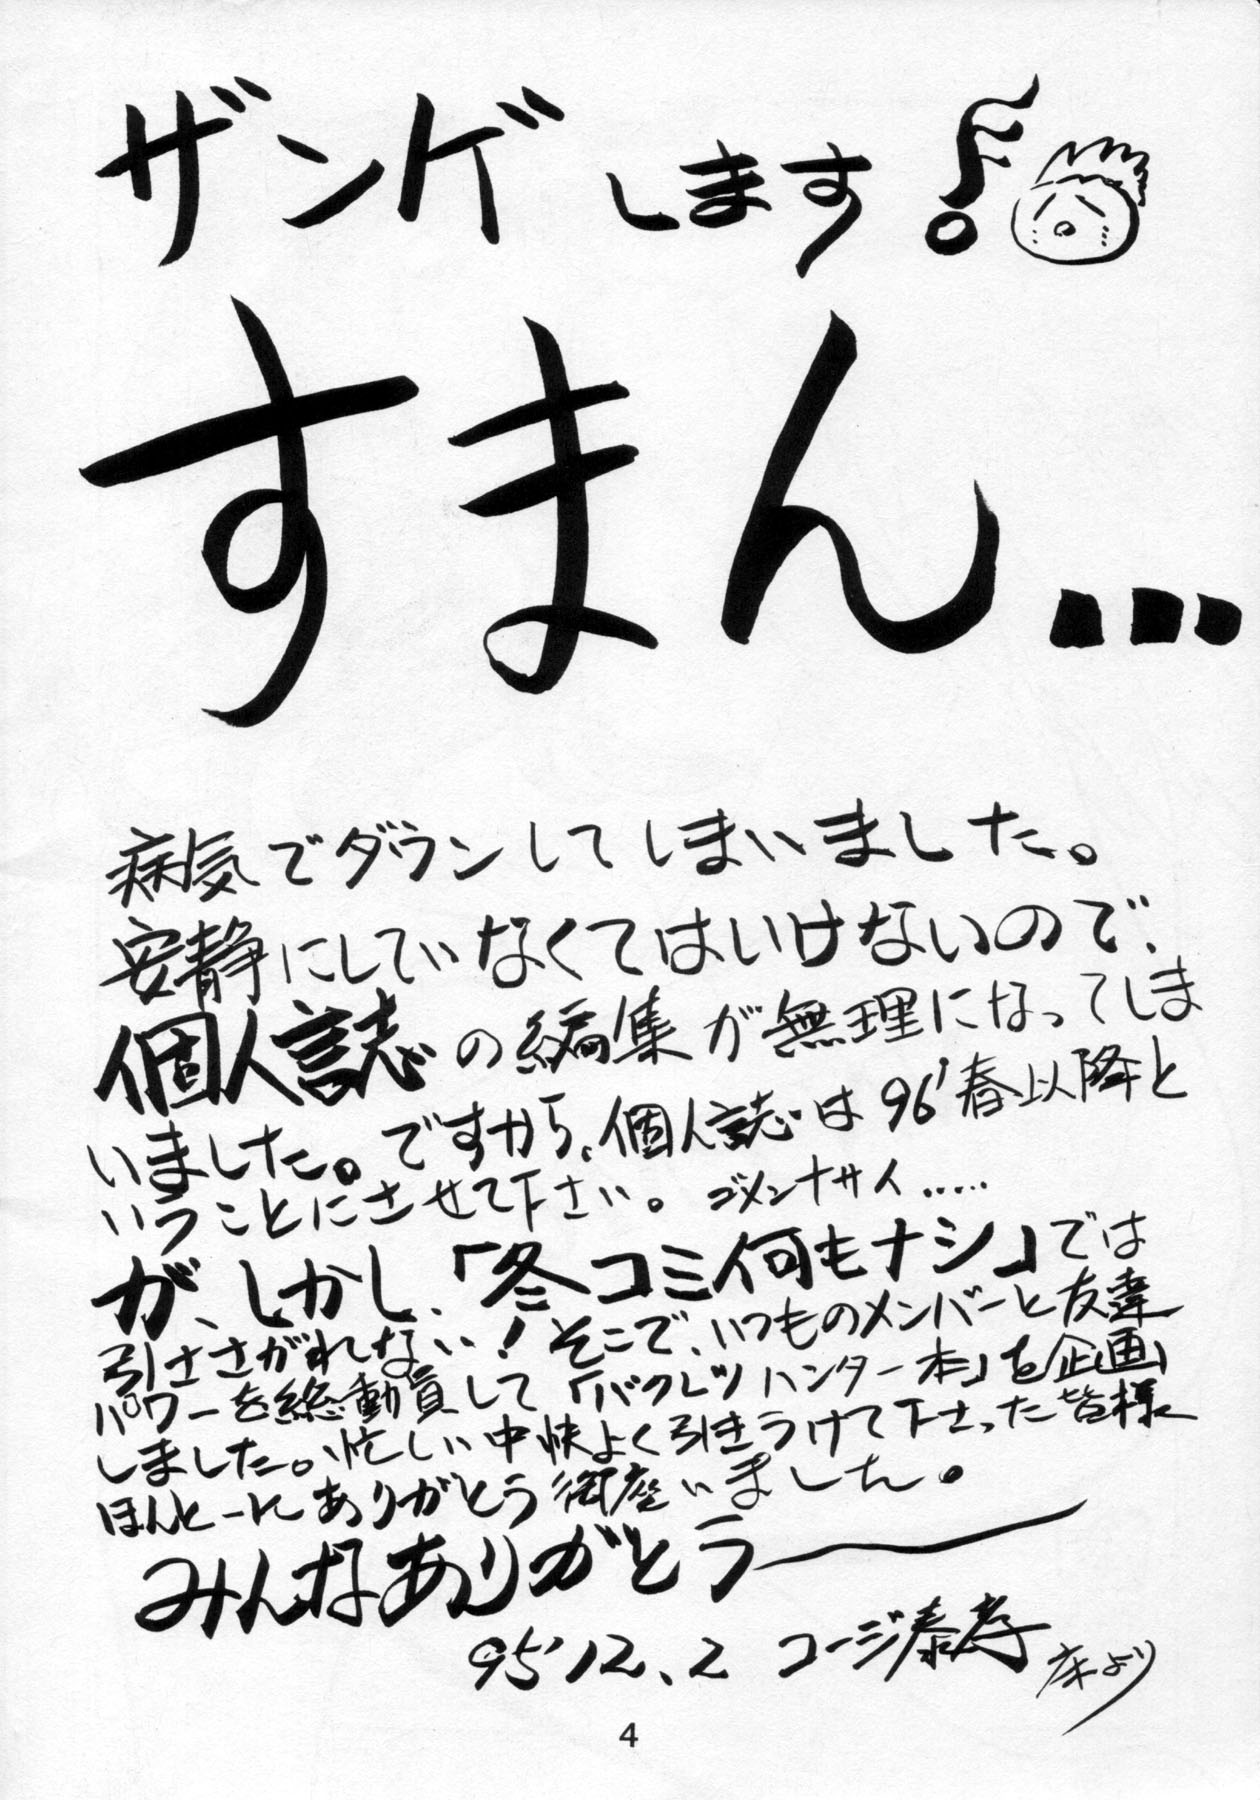 ザンゲします
すまん…
病気でダウンしてしまいました。
安静にしていなくてはいけないので、
個人誌の編集が無理になってしま
いました。ですから、個人誌は96'春以降と
いうことにさせて下さい。ゴメンナサイ.....
が、しかし、「冬コミ何もナシ」では
引きさがれない！そこで、いつものメンバーと友達
パワーを総動員して「バクレツハンター本」を企画
しました。忙しい中快よく引きうけて下さった皆様
ほんとーにありがとう御座いました。
みんなありがとうー
95'12.2 コージ泰孝 床より
4